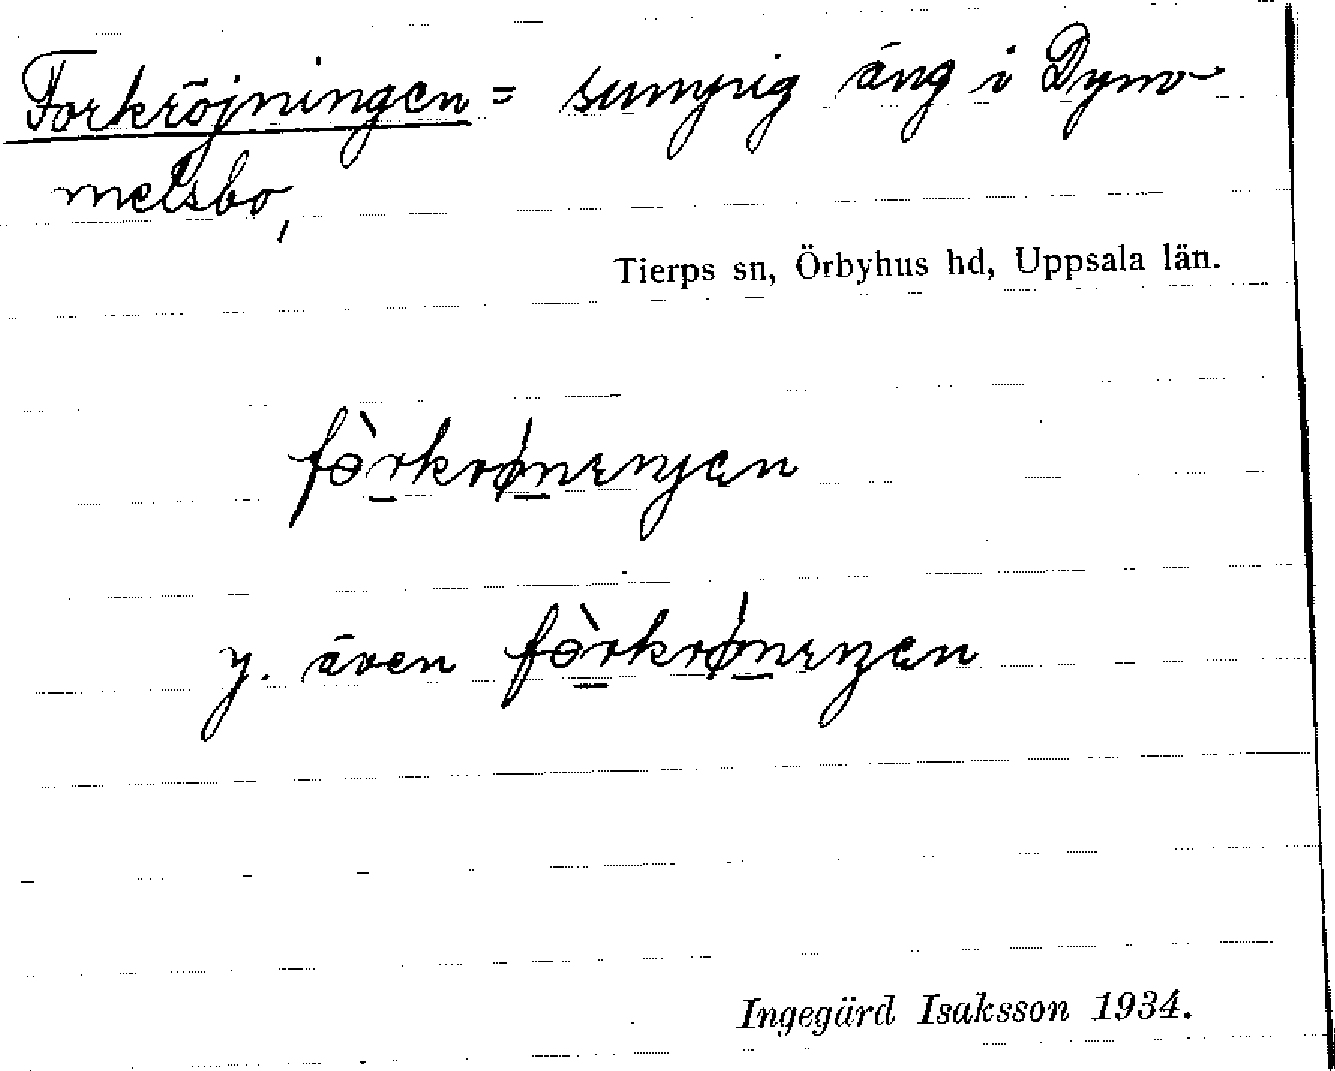 Forkröjningen = sumpig äng i Dym-
melsbo,
Tierps sn, Örbyhus hd, Uppsala län.
y. även
Ingegärd Isaksson 1934.